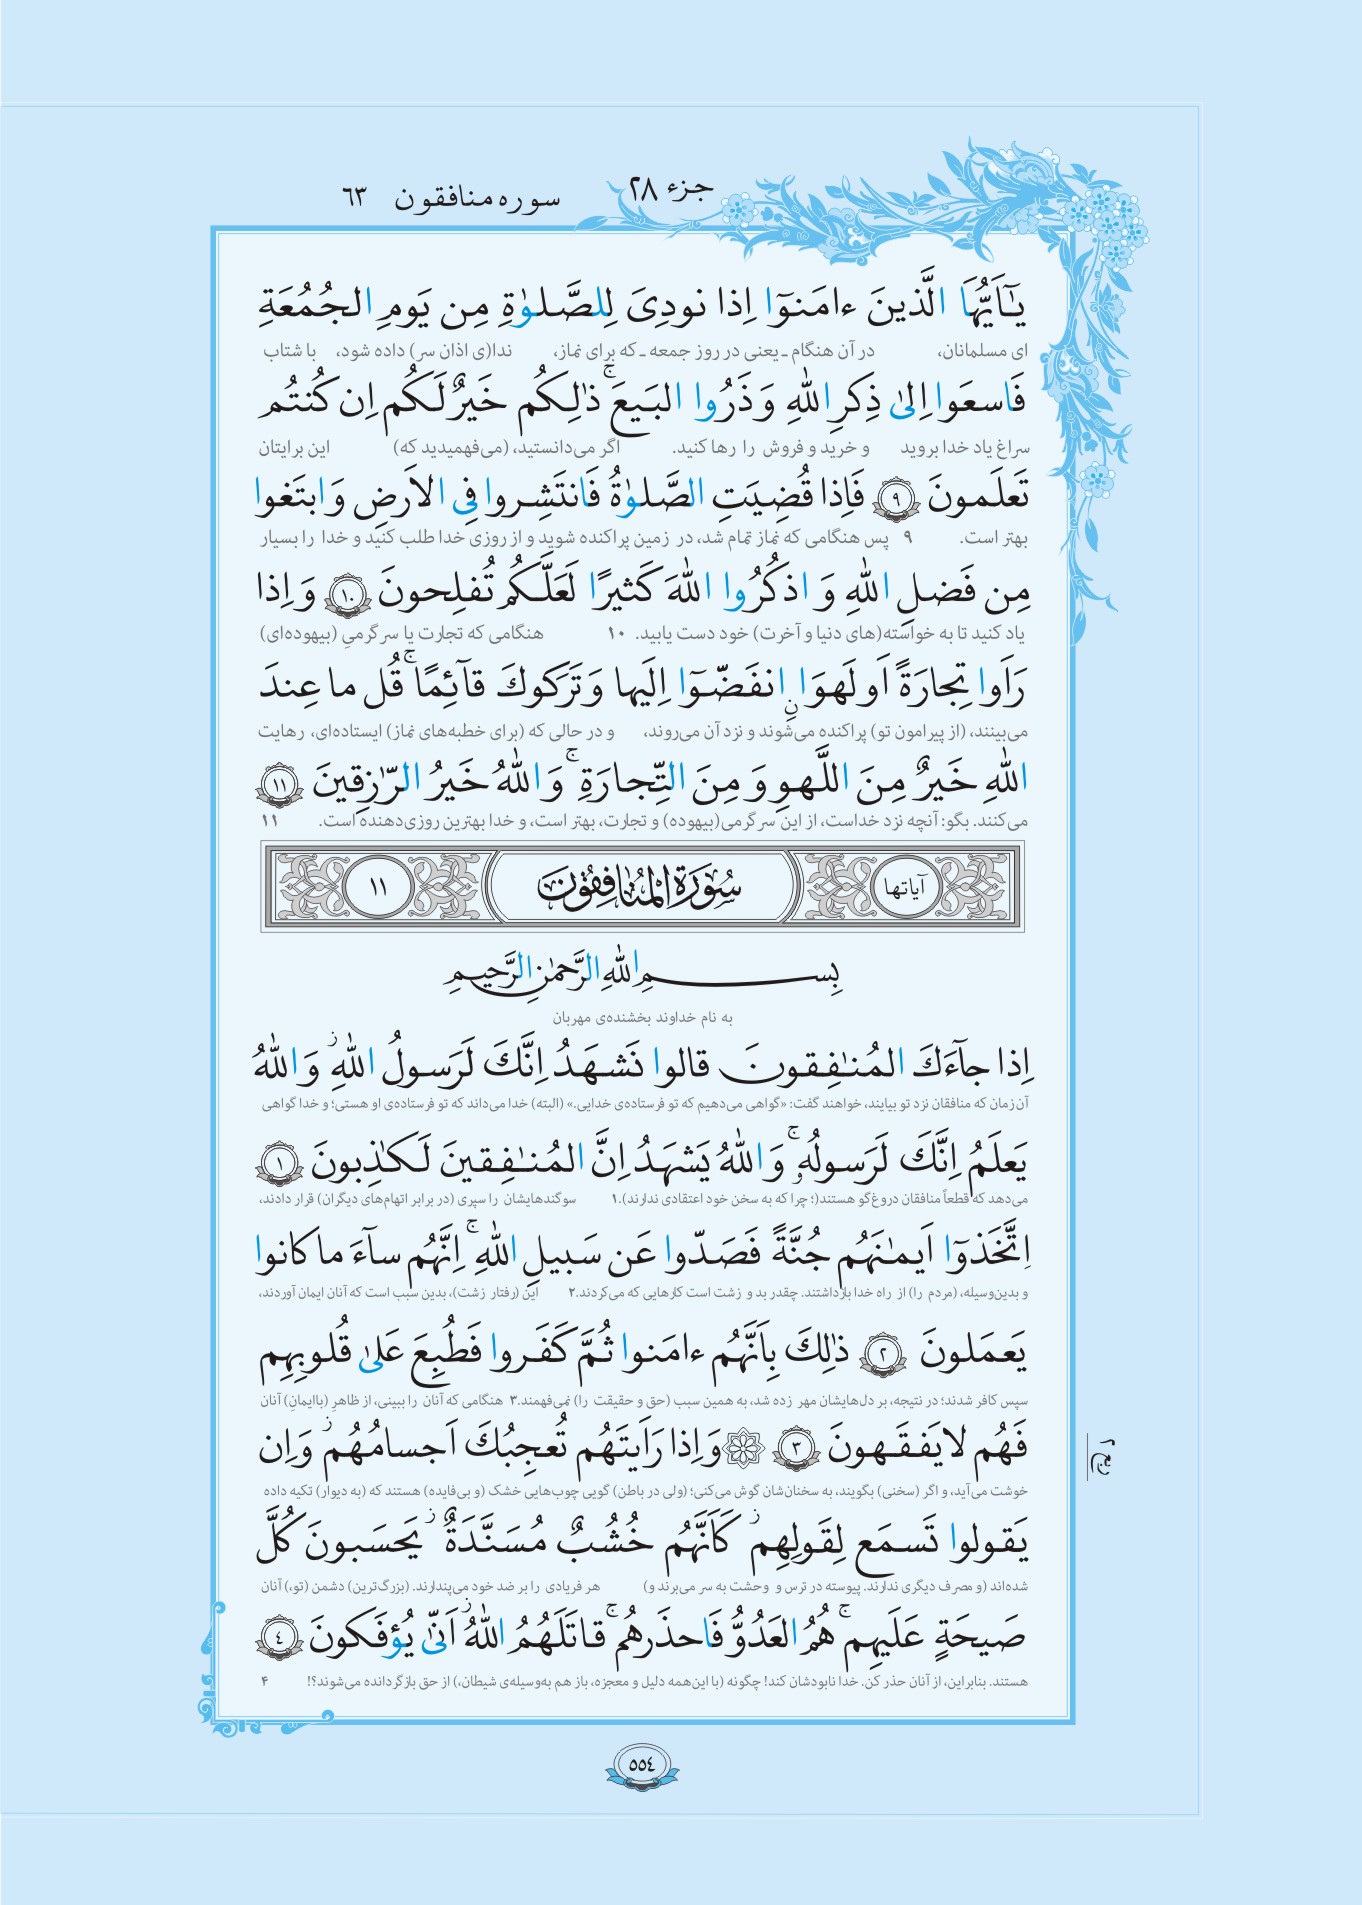 جزء ۲۸
سوره منافقون ۶۳
يٰٓاَيُّهَا الَّذينَ ءامَنوٓا اِذا نودِىَ لِلصَّلوٰةِ مِن يَومِ الجُمُعَةِ
ای مسلمانان، در آن هنگام ـ یعنی در روز جمعه ـ که برای نماز، ندا(ی اذان سر) داده شود، با شتاب
فَاسعَوا اِلىٰ ذِكرِ اللّٰهِ وَ ذَرُوا البَيعَ ۚ ذٰلِكُم خَيرٌ لَكُم اِن كُنتُم
سراغ یاد خدا بروید و خرید و فروش را رها کنید. اگر می‌دانستید، (می‌فهمیدید که) این برایتان
تَعلَمونَ ٩ فَاِذا قُضِيَتِ الصَّلوٰةُ فَانتَشِروا فِى الاَرضِ وَ ابتَغوا
بهتر است. ۹ پس هنگامی که نماز تمام شد، در زمین پراکنده شوید و از روزی خدا طلب کنید و خدا را بسیار
مِن فَضلِ اللّٰهِ وَ اذكُرُوا اللّٰهَ كَثيرًا لَعَلَّكُم تُفلِحونَ ١٠ وَ اِذا
یاد کنید تا به خواسته(های دنیا و آخرت) خود دست یابید. ۱۰ هنگامی که تجارت یا سرگرمیِ (بیهوده‌ای)
رَاَوا تِجارَةً اَو لَهوَاۨ انفَضّوٓا اِلَيها وَ تَرَكوكَ قآئِمًا ۚ قُل ما عِندَ
می‌بینند، (از پیرامون تو) پراکنده می‌شوند و نزد آن می‌روند، و در حالی که (برای خطبه‌های نماز) ایستاده‌ای، رهایت
اللّٰهِ خَيرٌ مِنَ اللَّهوِ وَ مِنَ التِّجارَةِ ۚ وَ اللّٰهُ خَيرُ الرّٰزِقينَ ١١
می‌کنند. بگو: آنچه نزد خداست، از این سرگرمی(بیهوده) و تجارت، بهتر است، و خدا بهترین روزی‌دهنده است. ۱۱
آیاتها سُوۡرَةُ الۡمُنٰافِقُوۡنَ ١١
بِسمِ اللّٰهِ الرَّحمٰنِ الرَّحيمِ
به نام خداوند بخشنده‌ی مهربان
اِذا جآءَكَ المُنٰفِقونَ قالوا نَشهَدُ اِنَّكَ لَرَسولُ اللّٰهِ ز وَ اللّٰهُ
آن زمان که منافقان نزد تو بیایند، خواهند گفت: «گواهی می‌دهیم که تو فرستاده‌ی خدایی.» (البته) خدا می‌داند که تو فرستاده‌ی او هستی؛ و خدا گواهی
يَعلَمُ اِنَّكَ لَرَسولُهٗ ۚ وَ اللّٰهُ يَشهَدُ اِنَّ المُنٰفِقينَ لَكٰذِبونَ ١
می‌دهد که قطعاً منافقان دروغ‌گو هستند(؛ چرا که به سخن خود اعتقادی ندارند).۱ سوگندهایشان را سپری (در برابر اتهام‌های دیگران) قرار دادند،
اِتَّخَذوٓا اَيمٰنَهُم جُنَّةً فَصَدّوا عَن سَبيلِ اللّٰهِ ۚ اِنَّهُم سآءَ ما كانوا
و بدین‌وسیله، (مردم را) از راه خدا بازداشتند. چقدر بد و زشت است کارهایی که می‌کردند.۲ این (رفتار زشت)، بدین سبب است که آنان ایمان آوردند،
يَعمَلونَ ٢ ذٰلِكَ بِاَنَّهُم ءامَنوا ثُمَّ كَفَروا فَطُبِعَ عَلىٰ قُلوبِهِم
سپس کافر شدند؛ در نتیجه، بر دل‌هایشان مهر زده شد، به همین سبب (حق و حقیقت را) نمی‌فهمند.۳ هنگامی که آنان را ببینی، از ظاهرِ (باایمانِ) آنان
فَهُم لا يَفقَهونَ ٣ ۞ وَ اِذا رَاَيتَهُم تُعجِبُكَ اَجسامُهُم ز وَ اِن
خوشت می‌آید، و اگر (سخنی) بگویند، به سخنان‌شان گوش می‌کنی؛ (ولی در باطن) گویی چوب‌هایی خشک (و بی‌فایده) هستند که (به دیوار) تکیه داده
يَقولوا تَسمَع لِقَولِهِم ز كَاَنَّهُم خُشُبٌ مُسَنَّدَةٌ ز يَحسَبونَ كُلَّ
شده‌اند (و مصرف دیگری ندارند. پیوسته در ترس و وحشت به سر می‌برند و) هر فریادی را بر ضد خود می‌پندارند. (بزرگ‌ترین) دشمن (تو،) آنان
صَيحَةٍ عَلَيهِم ۚ هُمُ العَدُوُّ فَاحذَرهُم ۚ قاتَلَهُمُ اللّٰهُ ز اَنّىٰ يُؤفَكونَ ٤
هستند. بنابراین، از آنان حذر کن. خدا نابودشان کند! چگونه (با این‌همه دلیل و معجزه، باز هم به‌وسیله‌ی شیطان،) از حق بازگردانده می‌شوند؟! ۴
ربع ٢
٥٥٤